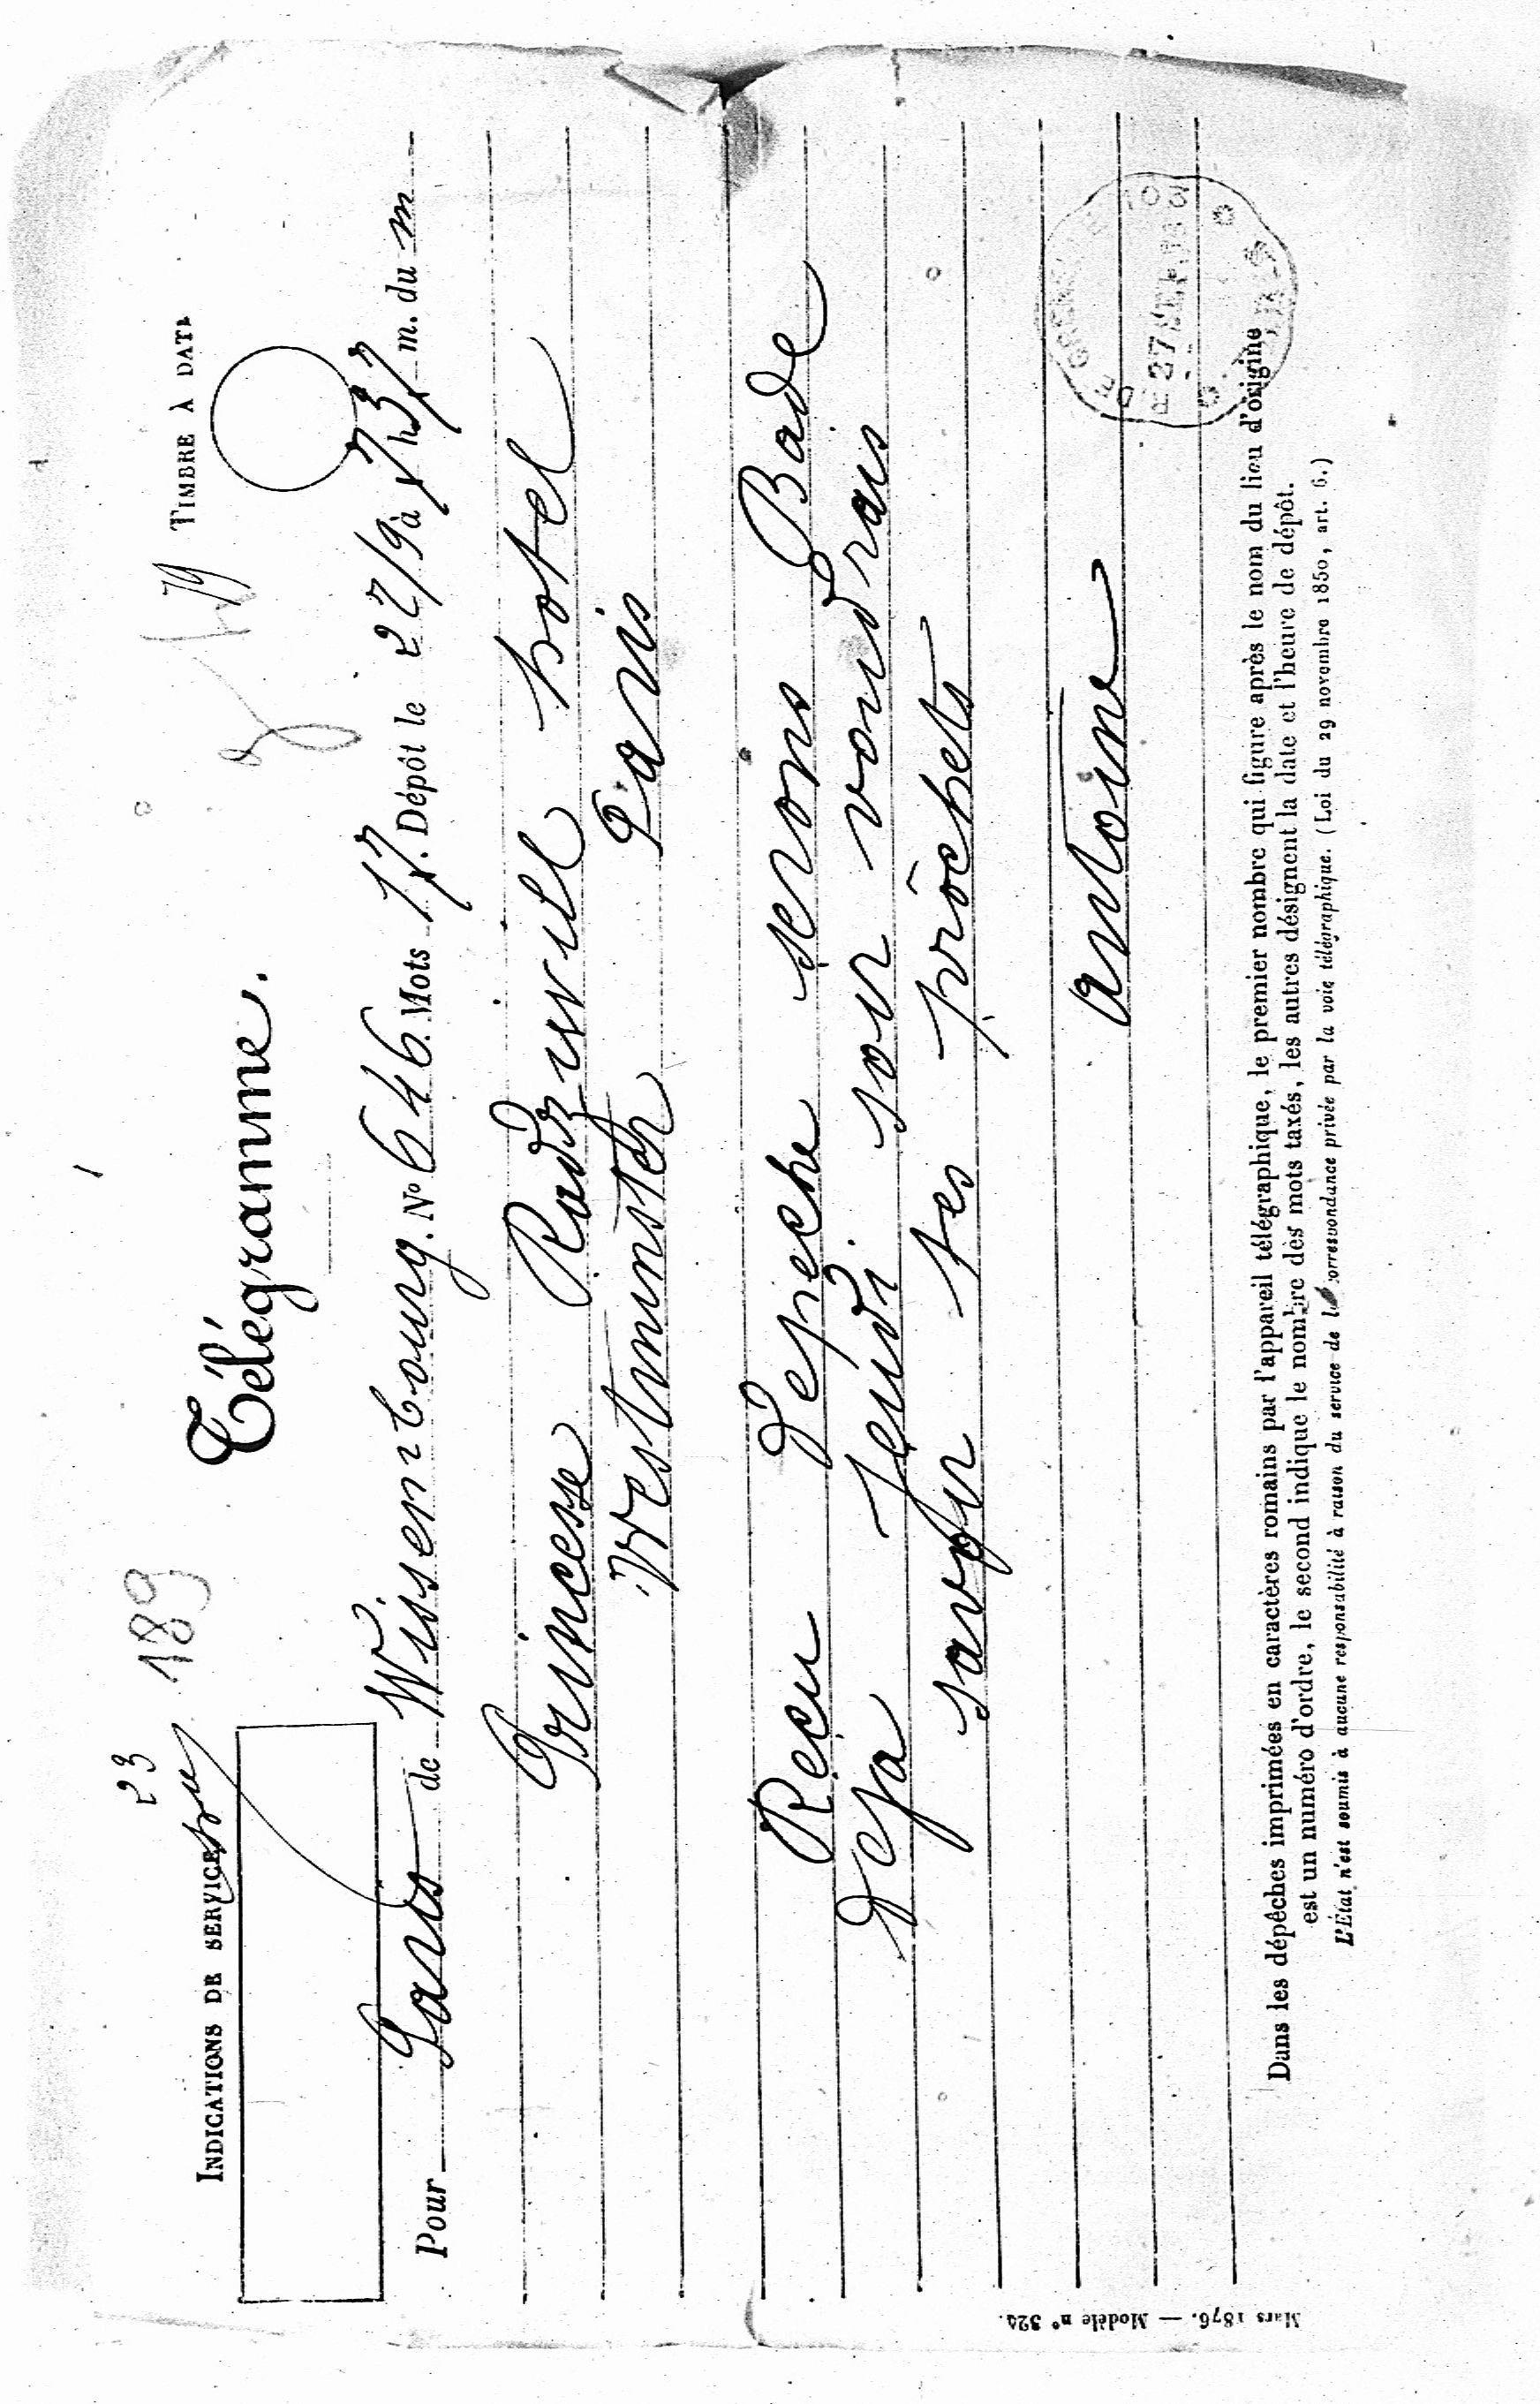 23
189
INDICATIONS DE SERVICE
Télégramme.
TIMBRE À DATE
Pour Paris de Wissembourg. N° 646. Mots 17. Dépôt le 27/9 à 7h 37 m. du m
Princesse Radziwill hotel
Westminster Paris
Recu depeche serons Bade
deja jeudi soir voudrais
savoir tes projets
antoine
R. DE GRENELLE 103
27 SEPT
PARIS
Dans les dépêches imprimées en caractères romains par l'appareil télégraphique, le premier nombre qui figure après le nom du lieu d'origine
est un numéro d'ordre, le second indique le nombre des mots taxés, les autres désignent la date et l'heure de dépôt.
L'État n'est soumis à aucune responsabilité à raison du service de la correspondance privée par la voie télégraphique. (Loi du 29 novembre 1850, art. 6.)
Mars 1876. — Modèle n° 324.